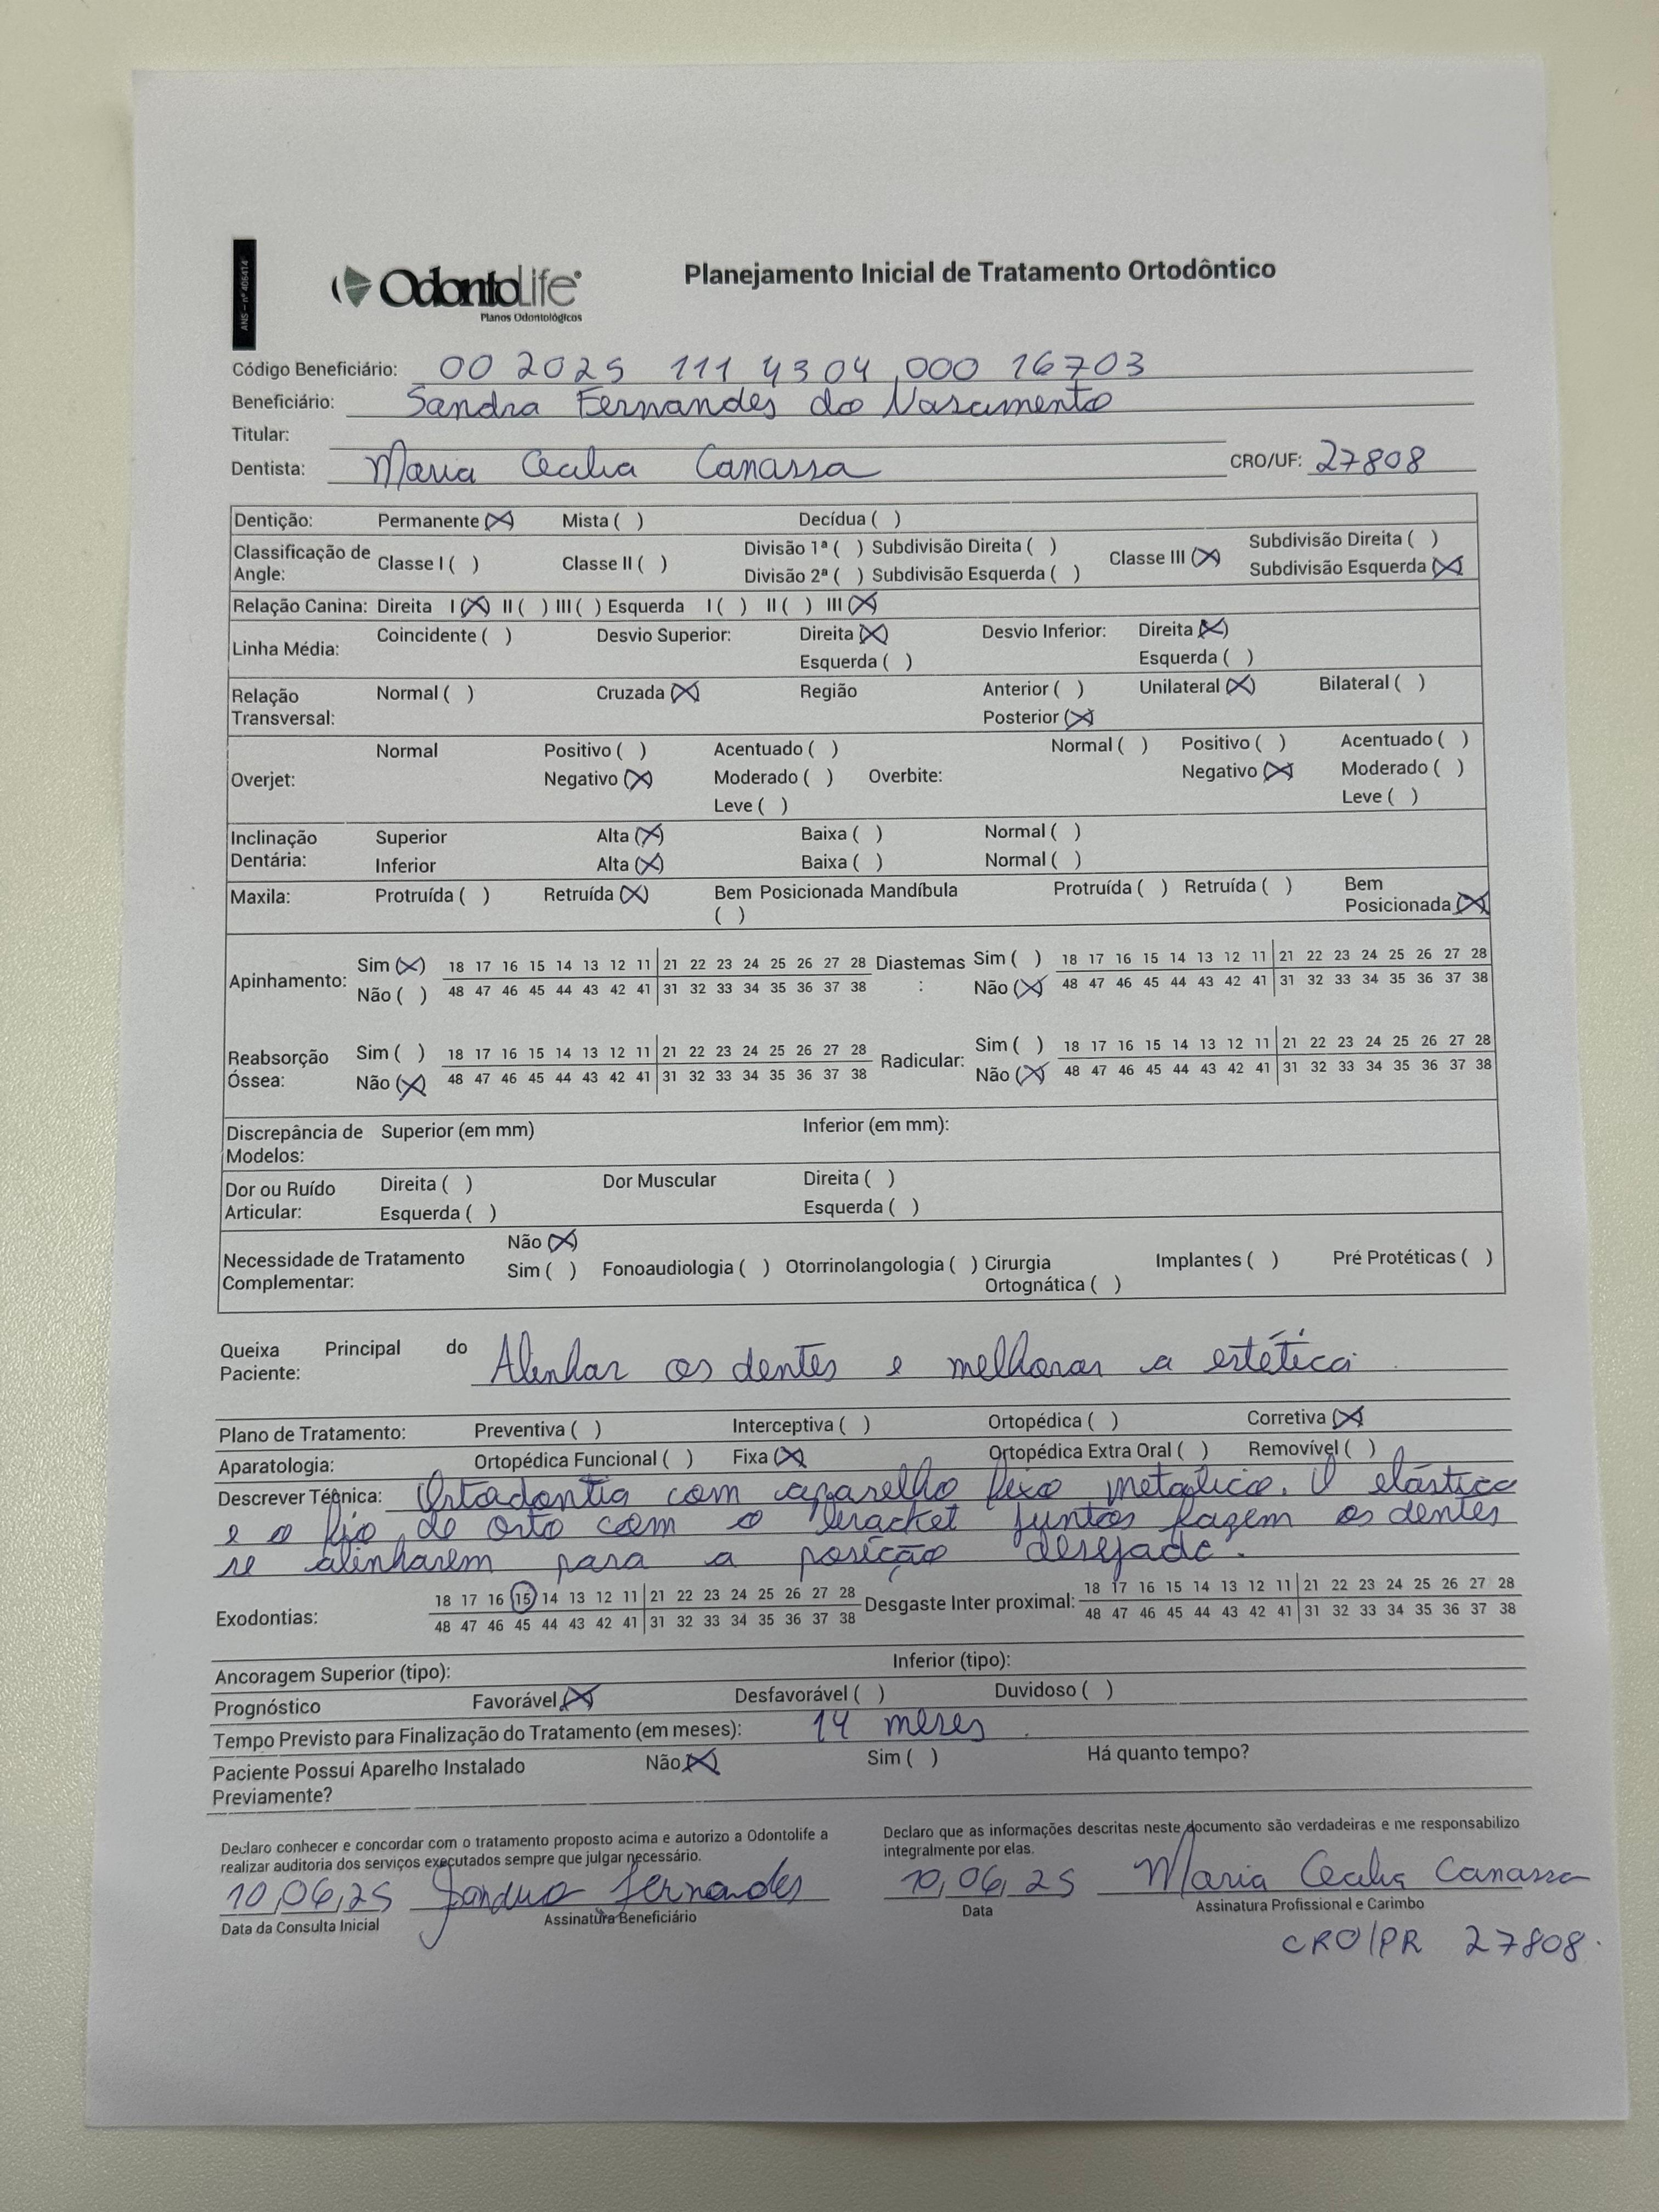 ANS – nº 406414
OdontoLife®
Planos Odontológicos
Planejamento Inicial de Tratamento Ortodôntico
Código Beneficiário: 00 2025 111 4304 000 16703
Beneficiário: Sandra Fernandes do Nascimento
Titular:
Dentista: Maria Cecilia Canassa CRO/UF: 27808
Dentição: Permanente (X) Mista ( ) Decídua ( )
Classificação de Angle: Classe I ( ) Classe II ( ) Divisão 1ª ( ) Subdivisão Direita ( ) Classe III (X) Subdivisão Direita ( )
Divisão 2ª ( ) Subdivisão Esquerda ( ) Subdivisão Esquerda (X)
Relação Canina: Direita I (X) II ( ) III ( ) Esquerda I ( ) II ( ) III (X)
Linha Média: Coincidente ( ) Desvio Superior: Direita (X) Desvio Inferior: Direita (X)
Esquerda ( ) Esquerda ( )
Relação Transversal: Normal ( ) Cruzada (X) Região Anterior ( ) Unilateral (X) Bilateral ( )
Posterior (X)
Overjet: Normal Positivo ( ) Acentuado ( ) Overbite: Normal ( ) Positivo ( ) Acentuado ( )
Negativo (X) Moderado ( ) Negativo (X) Moderado ( )
Leve ( ) Leve ( )
Inclinação Dentária: Superior Alta (X) Baixa ( ) Normal ( )
Inferior Alta (X) Baixa ( ) Normal ( )
Maxila: Protruída ( ) Retruída (X) Bem Posicionada ( ) Mandíbula Protruída ( ) Retruída ( ) Bem Posicionada (X)
Apinhamento: Sim (X) 18 17 16 15 14 13 12 11 21 22 23 24 25 26 27 28 Diastemas: Sim ( ) 18 17 16 15 14 13 12 11 21 22 23 24 25 26 27 28
Não ( ) 48 47 46 45 44 43 42 41 31 32 33 34 35 36 37 38 Não (X) 48 47 46 45 44 43 42 41 31 32 33 34 35 36 37 38
Reabsorção Óssea: Sim ( ) 18 17 16 15 14 13 12 11 21 22 23 24 25 26 27 28 Radicular: Sim ( ) 18 17 16 15 14 13 12 11 21 22 23 24 25 26 27 28
Não (X) 48 47 46 45 44 43 42 41 31 32 33 34 35 36 37 38 Não (X) 48 47 46 45 44 43 42 41 31 32 33 34 35 36 37 38
Discrepância de Modelos: Superior (em mm) Inferior (em mm):
Dor ou Ruído Articular: Direita ( ) Dor Muscular Direita ( )
Esquerda ( ) Esquerda ( )
Necessidade de Tratamento Complementar: Não (X)
Sim ( ) Fonoaudiologia ( ) Otorrinolangologia ( ) Cirurgia Ortognática ( ) Implantes ( ) Pré Protéticas ( )
Queixa Principal do Paciente: Alinhar os dentes e melhorar a estética.
Plano de Tratamento: Preventiva ( ) Interceptiva ( ) Ortopédica ( ) Corretiva (X)
Aparatologia: Ortopédica Funcional ( ) Fixa (X) Ortopédica Extra Oral ( ) Removível ( )
Descrever Técnica: Ortodontia com aparelho fixo metálico. O elástico
e o fio de orto com o bracket juntos fazem os dentes
se alinharem para a posição desejada.
Exodontias: 18 17 16 15 14 13 12 11 21 22 23 24 25 26 27 28 Desgaste Inter proximal: 18 17 16 15 14 13 12 11 21 22 23 24 25 26 27 28
48 47 46 45 44 43 42 41 31 32 33 34 35 36 37 38 48 47 46 45 44 43 42 41 31 32 33 34 35 36 37 38
Ancoragem Superior (tipo): Inferior (tipo):
Prognóstico Favorável (X) Desfavorável ( ) Duvidoso ( )
Tempo Previsto para Finalização do Tratamento (em meses): 14 meses.
Paciente Possui Aparelho Instalado Previamente? Não (X) Sim ( ) Há quanto tempo?
Declaro conhecer e concordar com o tratamento proposto acima e autorizo a Odontolife a
realizar auditoria dos serviços executados sempre que julgar necessário.
10,06,25 Sandra Fernandes
Data da Consulta Inicial Assinatura Beneficiário
Declaro que as informações descritas neste documento são verdadeiras e me responsabilizo
integralmente por elas.
10,06,25 Maria Cecilia Canassa
Data Assinatura Profissional e Carimbo
CRO/PR 27808.